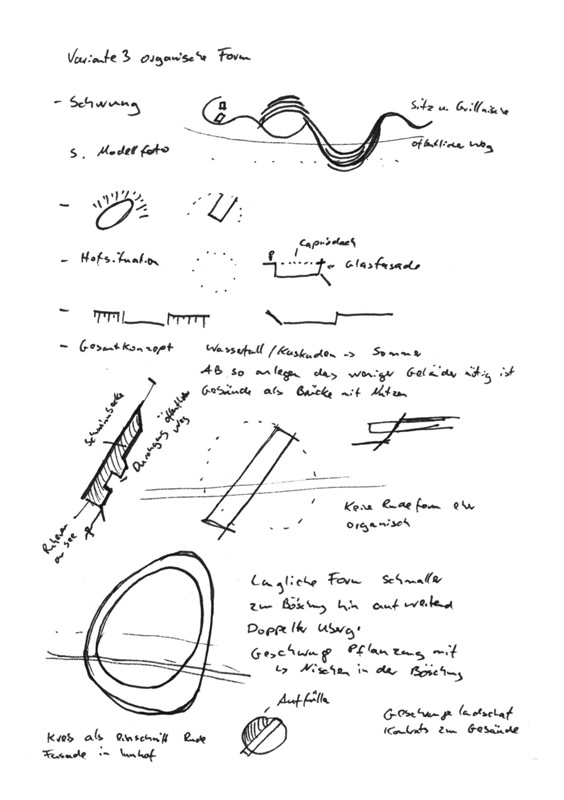 Variante 3 organische Form
- Schwung
Sitz u. Grillnische
öffentlicher Weg
s. Modellfoto
- Hofsituation
Glasfasade
- Gesamtkonzept
Wasserfall / Kaskaden -> Sommer
AB so anlegen das weniger Geländer nötig ist
Gebäude als Brücke mit Nutzen
Durchgang öffentlicher
Weg
Keine Rundeform eher
organisch
Längliche Form schmaller
zum Böschung hin aufweitend
Doppelter Überg.
Geschwunge Pflanzung mit
↳ Nischen in der Böschung
Auffülle
Kreis als einschnitt Runde
Fasade in Innhof
Geschwunge landschaft
Kontrats zum Gebäude